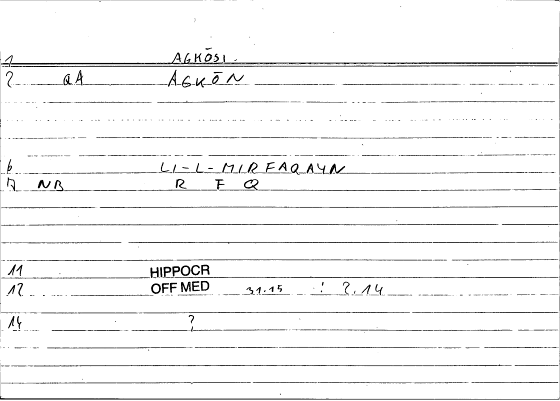 1 AGKŌSI.
2 QA AGKŌN
6 LI-L-MIRFAQAYN
7 NB R F Q
11 HIPPOCR
12 OFF MED 31.15 : 2.14
14 ?